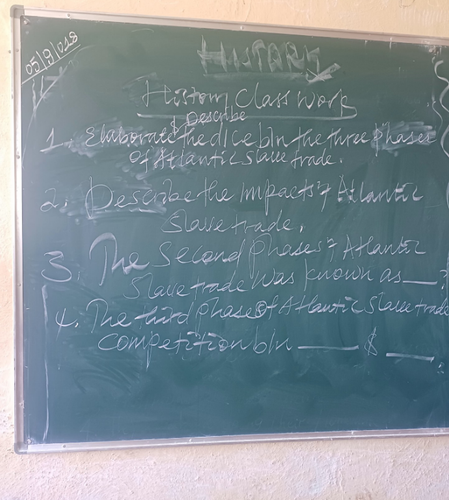 05/9/018
HISTORY
History Class Work
& Describe
1. Elaborate the d/ce b/n the three phases
of Atlantic Slave trade.
2. Describe the impacts of Atlantic
Slave trade.
3. The Second phases of Atlantic
Slave trade was known as __?
4. The third phase of Atlantic Slave trade
competition b/n ___ & ___